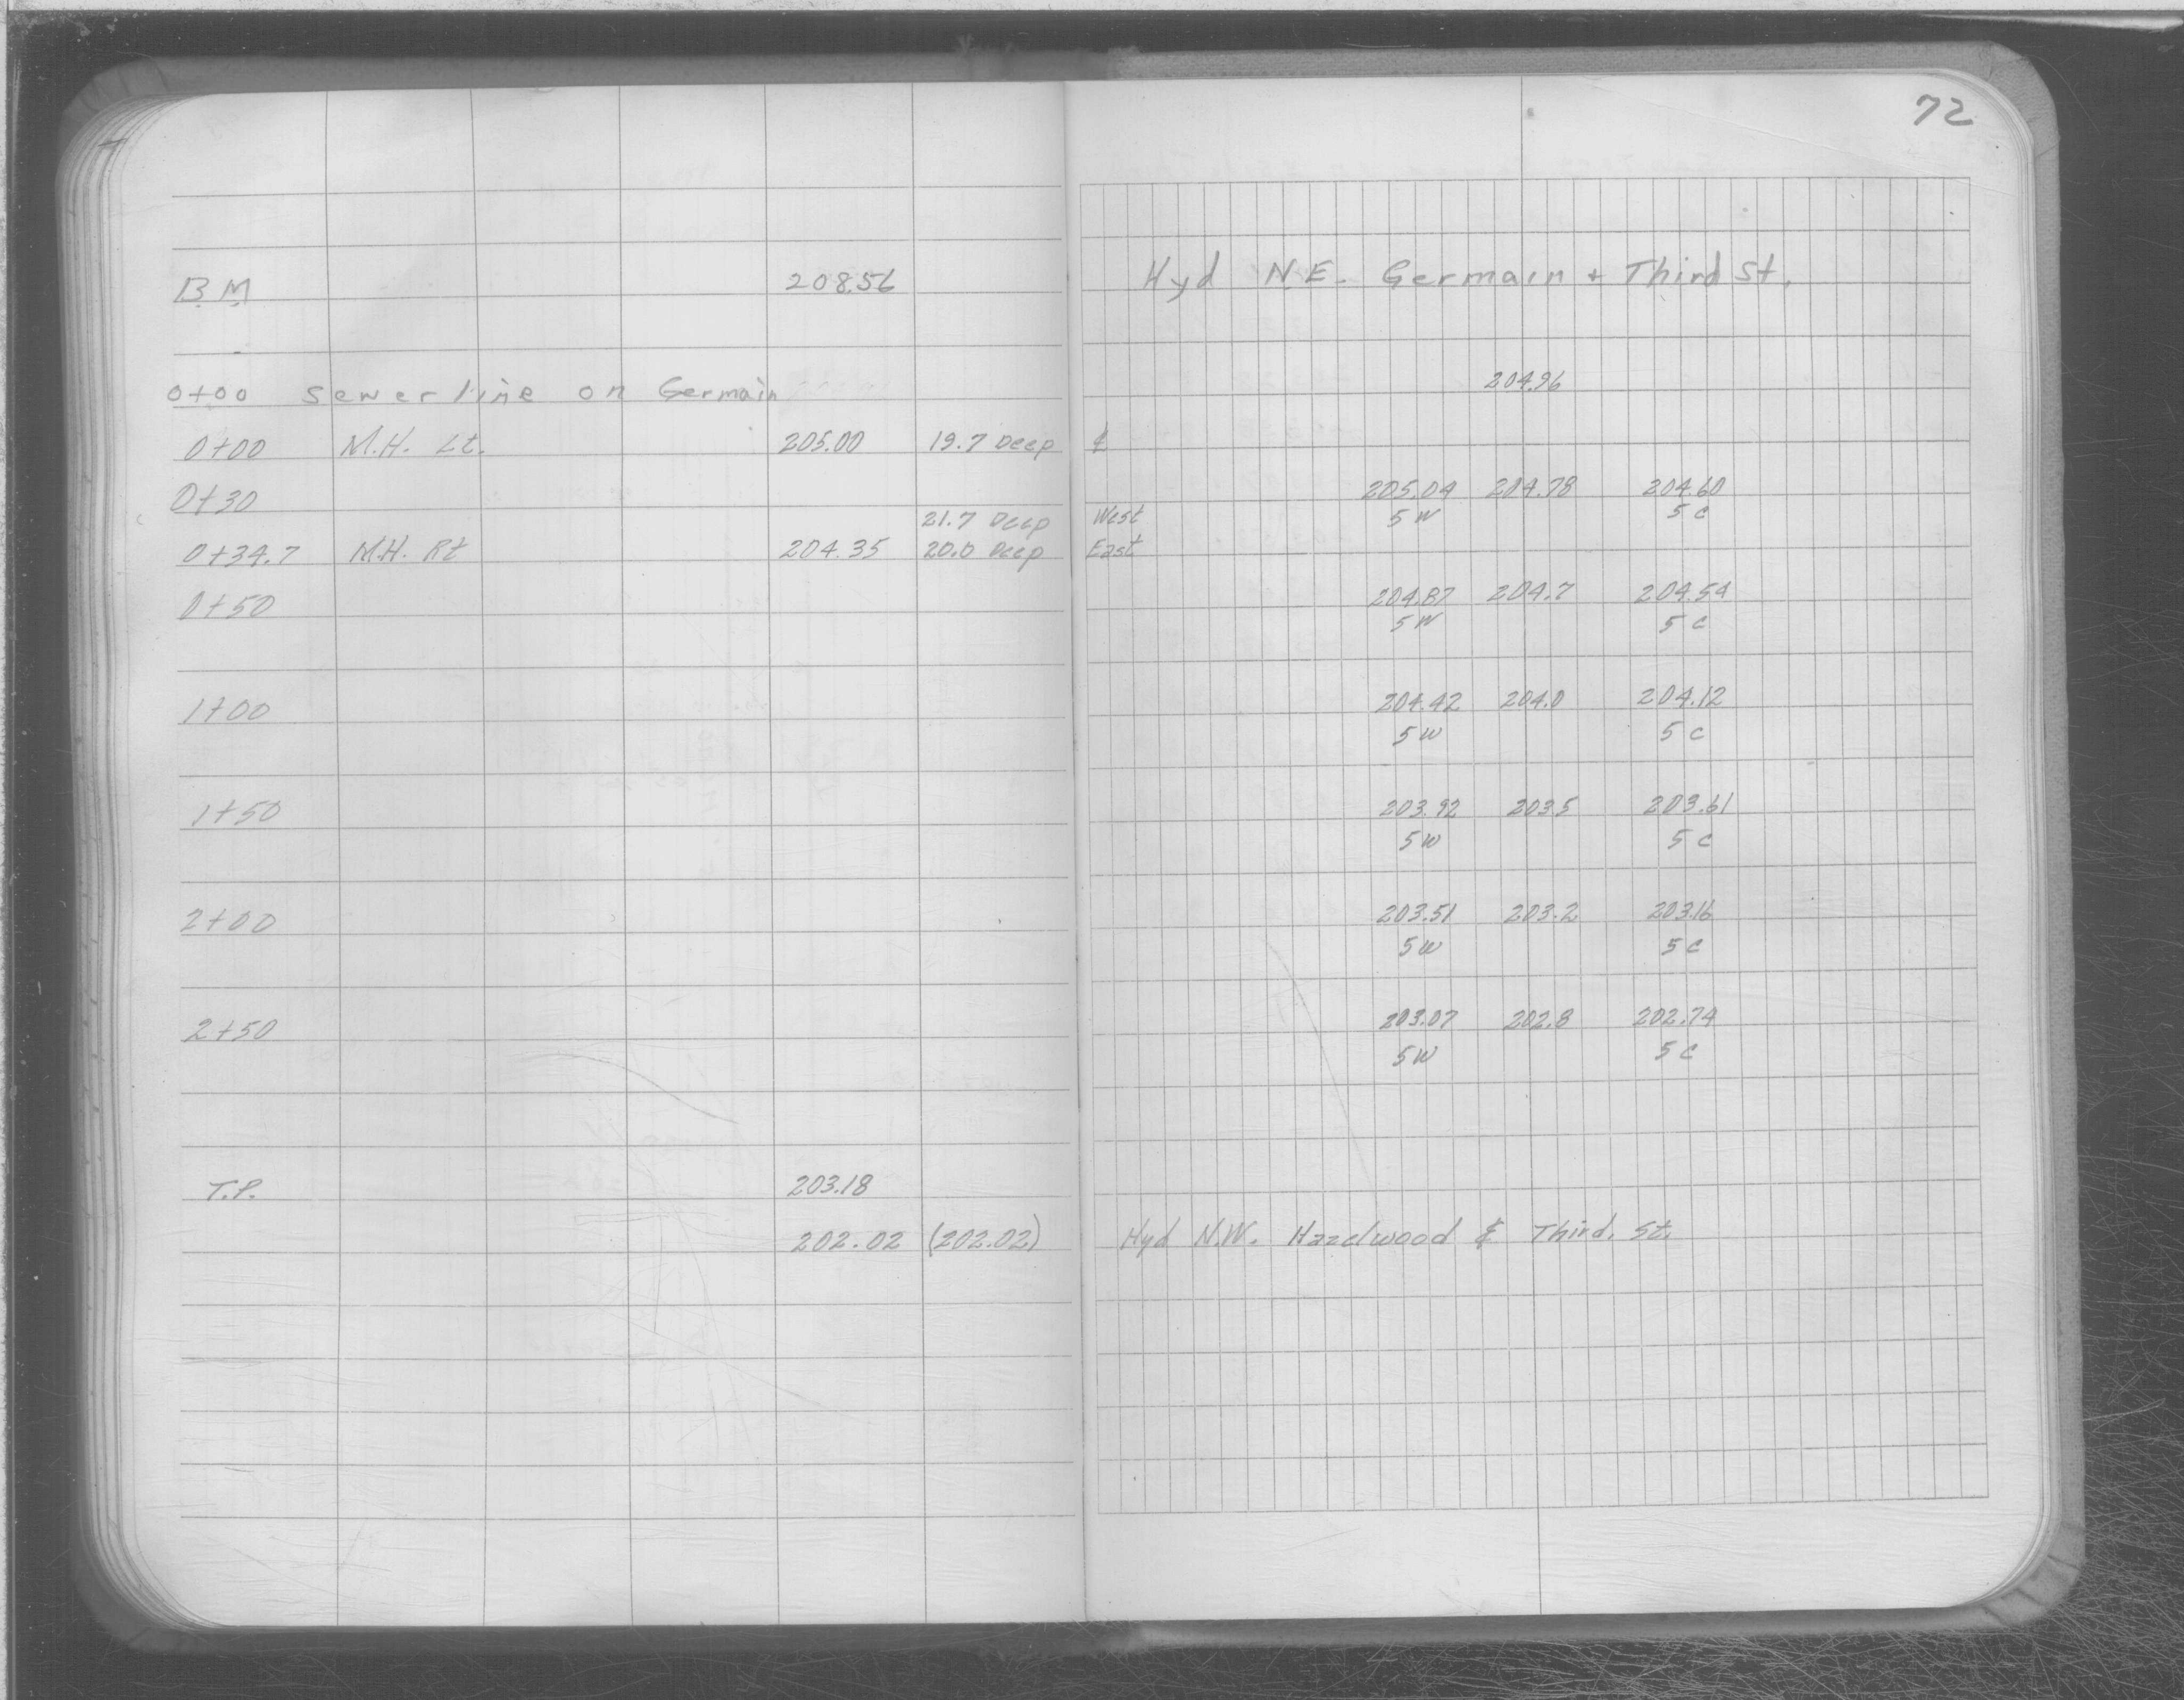 72
BM 208.56 Hyd N.E. Germain + Third St.
0+00 sewer line on Germain 204.96
0+00 M.H. Lt. 205.00 19.7 Deep ¢
0+30 205.04 204.78 204.60
21.7 Deep West 5W 5C
0+34.7 M.H. Rt 204.35 20.0 Deep East
0+50 204.87 204.7 204.54
5W 5C
1+00 204.42 204.0 204.12
5W 5C
1+50 203.92 203.5 203.61
5W 5C
2+00 203.51 203.2 203.16
5W 5C
2+50 203.07 202.8 202.74
5W 5C
T.P. 203.18
202.02 (202.02) Hyd N.W. Hazelwood & Third. St.